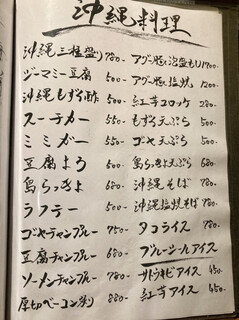 沖縄料理
沖縄三種盛り 780-
ジーマミー豆腐 500-
沖縄もずく酢 500-
スーチカー 550-
ミミガー 500-
豆腐よう 500-
島らっきょ 500-
ラフテー 600-
ゴーヤチャンプルー 750-
豆腐チャンプルー 680-
ソーメンチャンプルー 780-
厚切ベーコン炙り 880-
アグー豚と泡盛もり 1700-
アグー豚と塩焼 1200-
紅芋コロッケ 200-
もずく天ぷら 500-
ゴーヤ天ぷら 500-
島らっきょ天ぷら 600-
沖縄そば 780-
沖縄塩焼そば 780-
タコライス 780-
ブルーシールアイス
サトウキビアイス 450-
紅芋アイス 450-